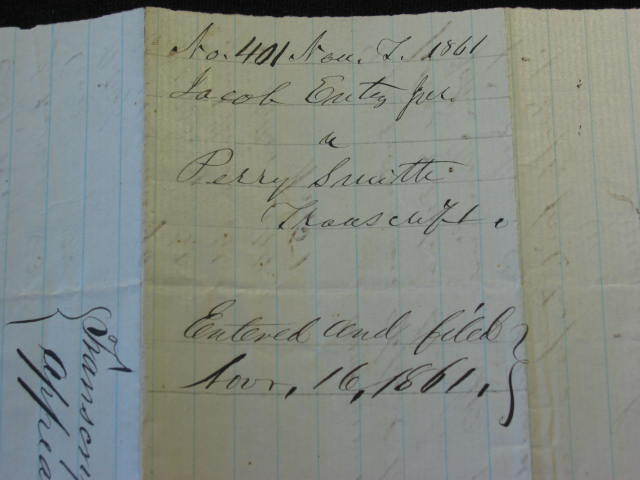 No. 401 Nov. T. 1861
Jacob Entz Jur.
v
Perry Smith
Transcript.
Entered and filed
Novr. 16, 1861.
Transcrip
of
appea